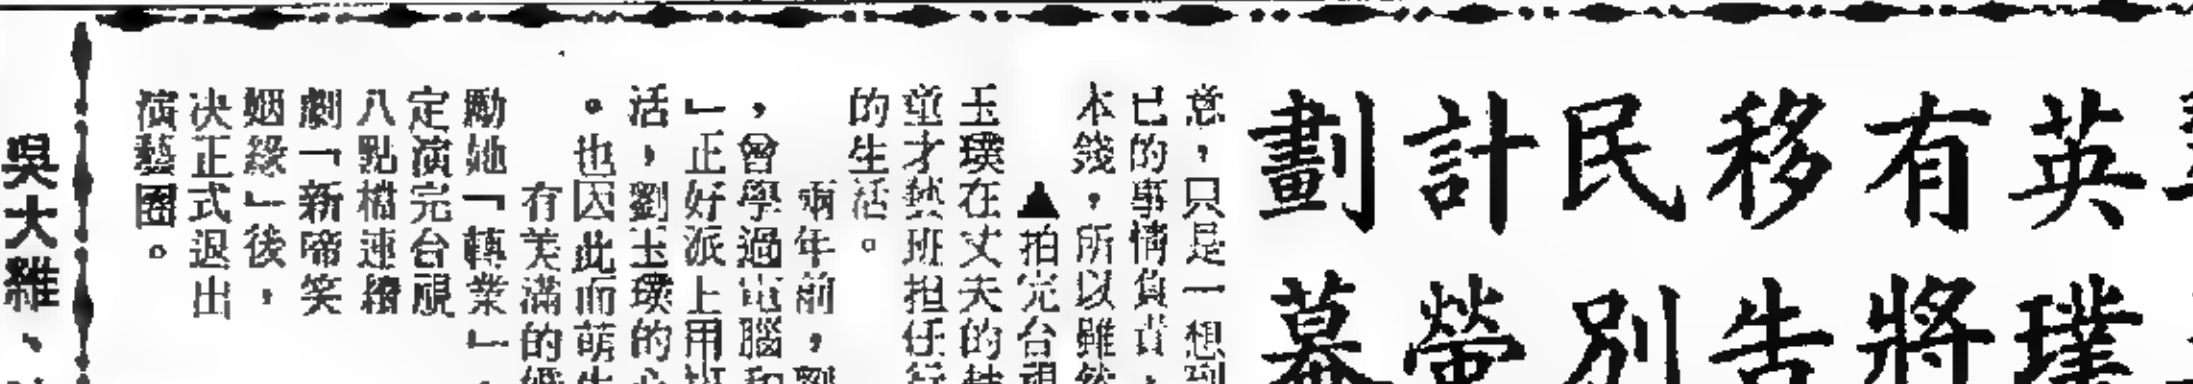 英有移民計劃
璞將告別螢幕
意，只是一想到
已的事情負責，
本錢，所以雖然
▲拍完台視
玉璞在丈夫的
童才藝班担任行
的生活。
兩年前，劉
，曾學過電腦和
」正好派上用
活，劉玉璞的心
。也因此而萌生
有美滿的婚
勵她「轉業」，
定演完台視
八點檔連續
劇「新啼笑
姻緣」後，
決正式退出
演藝圈。
吳大維、